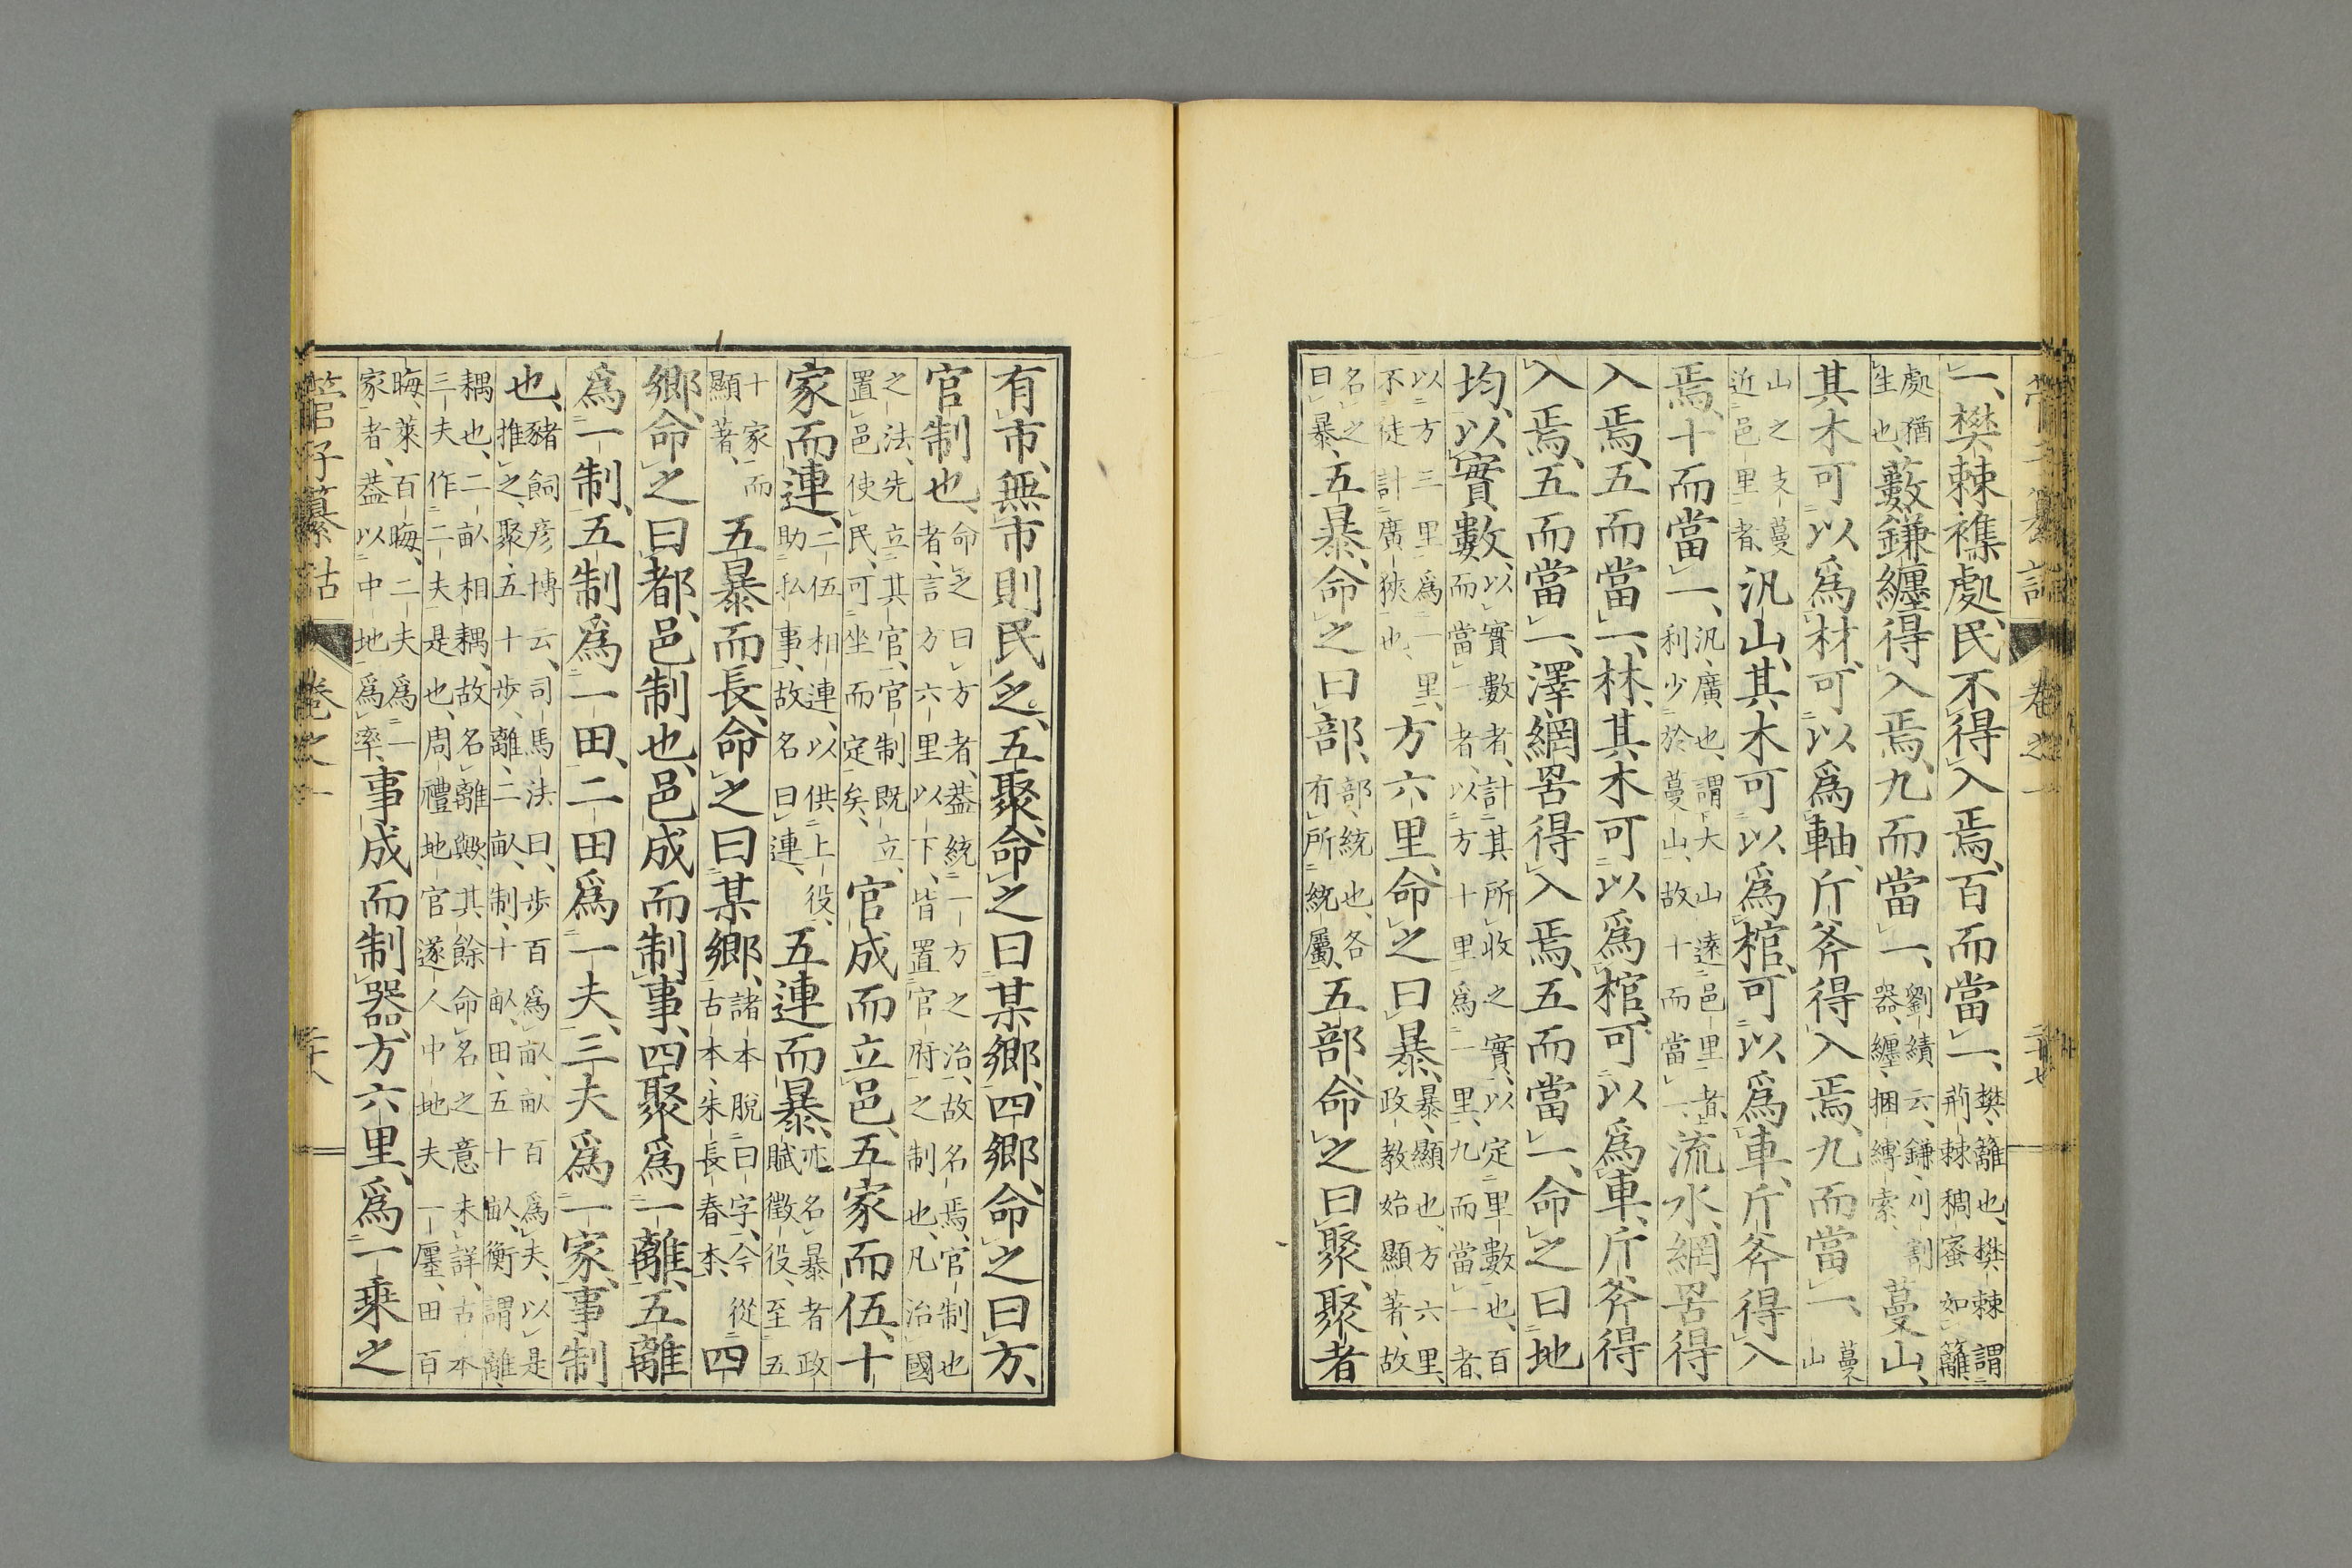 一、樊棘襍處、民不得入焉、百而當一、樊、籬也、樊棘謂荊棘稠蜜如籬、
處猶生也、藪鎌纏得入焉、九而當一、劉績云、鎌、刈割器、纏、捆縛索、蔓山、
其木可以爲材、可以爲軸、斤斧得入焉、九而當一、蔓山
山之支蔓近邑里者、汎山、其木可以爲棺、可以爲車、斤斧得入
焉、十而當一、汎、廣也、謂大山遠邑里者、利少於蔓山、故十而當一、流水、網罟得
入焉、五而當一、林、其木可以爲棺、可以爲車、斤斧得
入焉、五而當一、澤、網罟得入焉、五而當一、命之曰地
均、以實數、以實數者、計其所收之實、以定里數也、百而當一者、以方十里爲一里、九而當一者、
以方三里爲一里、不徒計廣狹也、方六里、命之曰暴、暴、顯也、方六里、政教始顯著、故
名之曰暴、五暴、命之曰部、部、統也、各有所統屬、五部、命之曰聚、聚者
有市、無市則民乏、五聚、命之曰某鄉、四鄉、命之曰方、
官制也、命之曰方者、葢統一方之治、故名焉、官制也者、言方六里以下、皆置官府之制也、凡治國
之法、先立其官、官制既立、置邑使民、可坐而定矣、官成而立邑、五家而伍、十
家而連、二伍相連、以供上役、助私事、故名曰連、五連而暴、亦名暴者政賦徵役、至五
十家而顯著、五暴而長、命之曰某鄉、諸本脫曰字、今從古本、朱長春本、四
鄉、命之曰都、邑制也、邑成而制事、四聚爲一離、五離
爲一制、五制爲一田、二田爲一夫、三夫爲一家、事制
也、豬飼彥博云、司馬法曰、步百爲畝、畝百爲夫、以是推之、聚、五十步、離、二畝、制、十畝、田、五十畝、衡謂離、
耦也、二畝相耦、故名離歟、其餘命名之意未詳、古本三夫作二夫是也、周禮地官遂人中地夫一廛、田百
晦、萊百晦、二夫爲一家者、葢以中地爲率、事成而制器、方六里、爲一乗之
管子纂詁　卷之一